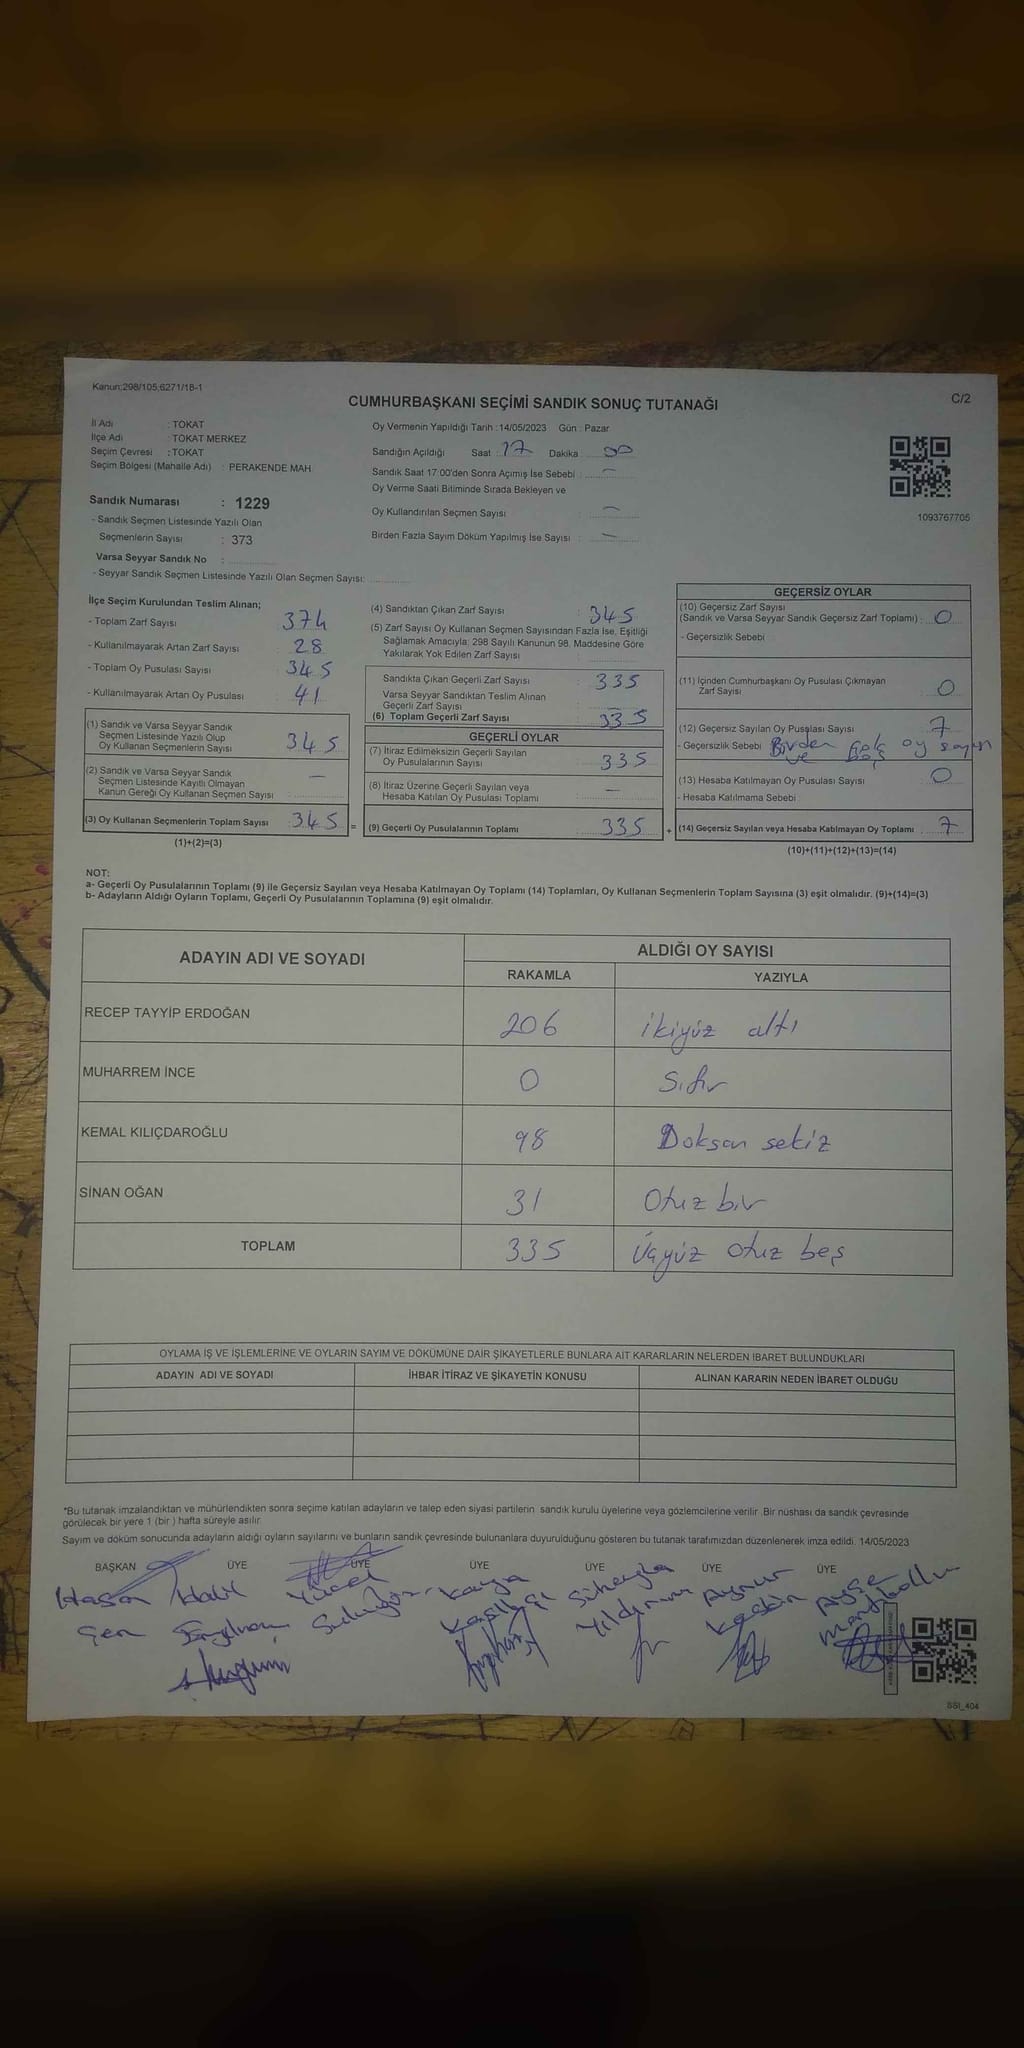 Kanun;298/105;6271/1B-1
C/2
CUMHURBAŞKANI SEÇİMİ SANDIK SONUÇ TUTANAĞI
İl Adı : TOKAT
İlçe Adı : TOKAT MERKEZ
Seçim Çevresi : TOKAT
Seçim Bölgesi (Mahalle Adı) : PERAKENDE MAH
Sandık Numarası : 1229
- Sandık Seçmen Listesinde Yazılı Olan
Seçmenlerin Sayısı : 373
Varsa Seyyar Sandık No :
- Seyyar Sandık Seçmen Listesinde Yazılı Olan Seçmen Sayısı:
Oy Vermenin Yapıldığı Tarih :14/05/2023 Gün : Pazar
Sandığın Açıldığı Saat 17 Dakika 00
Sandık Saat 17:00'den Sonra Açımış İse Sebebi : —
Oy Verme Saati Bitiminde Sırada Bekleyen ve
Oy Kullandırılan Seçmen Sayısı : —
Birden Fazla Sayım Döküm Yapılmış İse Sayısı : —
1093767705
İlçe Seçim Kurulundan Teslim Alınan;
- Toplam Zarf Sayısı : 374
- Kullanılmayarak Artan Zarf Sayısı : 28
- Toplam Oy Pusulası Sayısı : 345
- Kullanılmayarak Artan Oy Pusulası : 41
(1) Sandık ve Varsa Seyyar Sandık
Seçmen Listesinde Yazılı Olup
Oy Kullanan Seçmenlerin Sayısı : 345
(2) Sandık ve Varsa Seyyar Sandık
Seçmen Listesinde Kayıtlı Olmayan
Kanun Gereği Oy Kullanan Seçmen Sayısı : —
(3) Oy Kullanan Seçmenlerin Toplam Sayısı : 345 =
(1)+(2)=(3)
(4) Sandıktan Çıkan Zarf Sayısı : 345
(5) Zarf Sayısı Oy Kullanan Seçmen Sayısından Fazla İse, Eşitliği
Sağlamak Amacıyla; 298 Sayılı Kanunun 98. Maddesine Göre
Yakılarak Yok Edilen Zarf Sayısı :
Sandıkta Çıkan Geçerli Zarf Sayısı : 335
Varsa Seyyar Sandıktan Teslim Alınan
Geçerli Zarf Sayısı : —
(6) Toplam Geçerli Zarf Sayısı : 335
GEÇERLİ OYLAR
(7) İtiraz Edilmeksizin Geçerli Sayılan
Oy Pusulalarının Sayısı : 335
(8) İtiraz Üzerine Geçerli Sayılan veya
Hesaba Katılan Oy Pusulası Toplamı : —
(9) Geçerli Oy Pusulalarının Toplamı : 335 +
GEÇERSİZ OYLAR
(10) Geçersiz Zarf Sayısı
(Sandık ve Varsa Seyyar Sandık Geçersiz Zarf Toplamı) : 0
- Geçersizlik Sebebi
(11) İçinden Cumhurbaşkanı Oy Pusulası Çıkmayan
Zarf Sayısı : 0
(12) Geçersiz Sayılan Oy Pusulası Sayısı : 7
- Geçersizlik Sebebi Birden oy
(13) Hesaba Katılmayan Oy Pusulası Sayısı : 0
- Hesaba Katılmama Sebebi
(14) Geçersiz Sayılan veya Hesaba Katılmayan Oy Toplamı : 7
(10)+(11)+(12)+(13)=(14)
NOT:
a- Geçerli Oy Pusulalarının Toplamı (9) ile Geçersiz Sayılan veya Hesaba Katılmayan Oy Toplamı (14) Toplamları, Oy Kullanan Seçmenlerin Toplam Sayısına (3) eşit olmalıdır. (9)+(14)=(3)
b- Adayların Aldığı Oyların Toplamı, Geçerli Oy Pusulalarının Toplamına (9) eşit olmalıdır.
ADAYIN ADI VE SOYADI
ALDIĞI OY SAYISI
RAKAMLA YAZIYLA
RECEP TAYYİP ERDOĞAN 206 ikiyüz altı
MUHARREM İNCE 0 Sıfır
KEMAL KILIÇDAROĞLU 98 Doksan sekiz
SİNAN OĞAN 31 Otuz bir
TOPLAM 335 Üçyüz otuz beş
OYLAMA İŞ VE İŞLEMLERİNE VE OYLARIN SAYIM VE DÖKÜMÜNE DAİR ŞİKAYETLERLE BUNLARA AİT KARARLARIN NELERDEN İBARET BULUNDUKLARI
ADAYIN ADI VE SOYADI İHBAR İTİRAZ VE ŞİKAYETİN KONUSU ALINAN KARARIN NEDEN İBARET OLDUĞU
*Bu tutanak imzalandıktan ve mühürlendikten sonra seçime katılan adayların ve talep eden siyasi partilerin sandık kurulu üyelerine veya gözlemcilerine verilir. Bir nüshası da sandık çevresinde
görülecek bir yere 1 (bir ) hafta süreyle asılır.
Sayım ve döküm sonucunda adayların aldığı oyların sayılarını ve bunların sandık çevresinde bulunanlara duyurulduğunu gösteren bu tutanak tarafımızdan düzenlenerek imza edildi. 14/05/2023
BAŞKAN ÜYE ÜYE ÜYE ÜYE ÜYE ÜYE
Hasan Halil Yücel Kayga Süheyla Aynur Ayşe
Şen Yıldırım Keskin
SSI_404